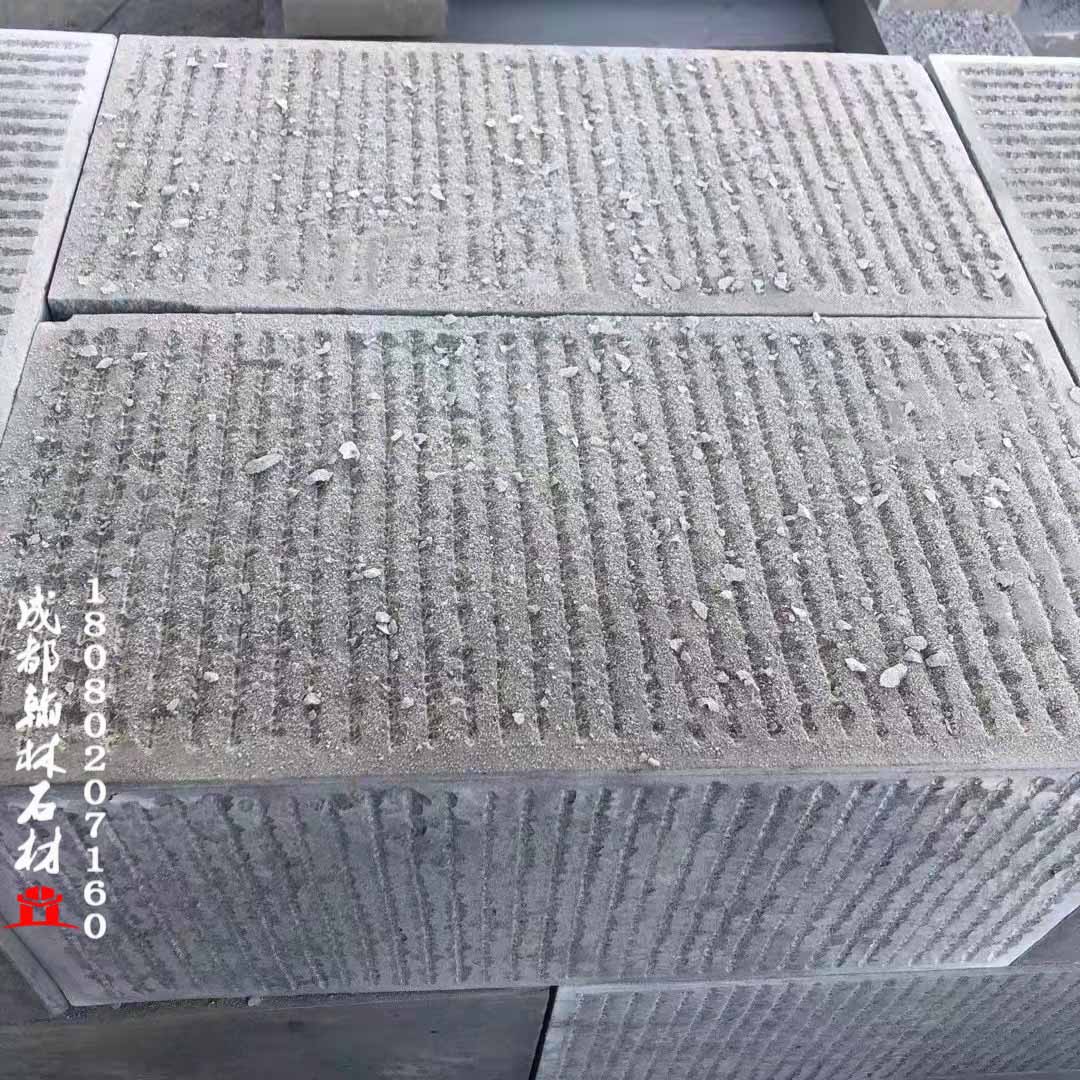 成都翰林石材
18080207160